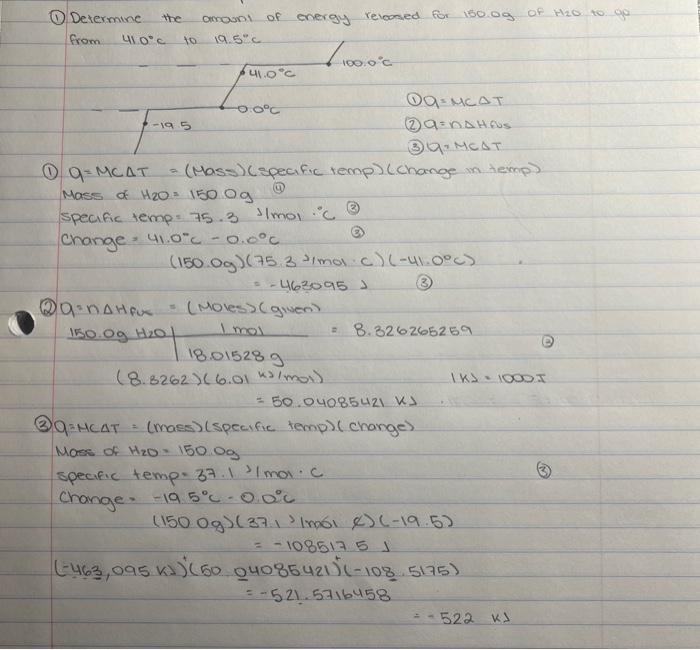 ① Determine the amount of energy released for 150.0g of H2O to go
from 41.0°C to 19.5°C
100.0°C
41.0°C
0.0°C
-19.5
① q=MCΔT
② q=nΔHfus
③ q=MCΔT
① q=MCΔT = (Mass)(specific temp)(change in temp)
Mass of H2O = 150.0g ④
specific temp = 75.3 J/mol·°C ③
Change = 41.0°C - 0.0°C ③
(150.0g)(75.3 J/mol·C)(-41.0°C)
= -463095 J ③
② q=nΔHfus = (Moles)(given)
150.0g H2O | 1 mol = 8.326265259
18.01528 g
(8.3262)(6.01 KJ/mol) 1KJ = 1000J
= 50.04085421 KJ
③ q=MCΔT = (mass)(specific temp)(change)
Mass of H2O = 150.0g
specific temp = 37.1 J/mol·C ③
Change = -19.5°C - 0.0°C
(150.0g)(37.1 J/mol C)(-19.5)
= -108517.5 J
(-463,095 KJ)+(50.04085421)+(-108.5175)
= -521.5716458
= -522 KJ